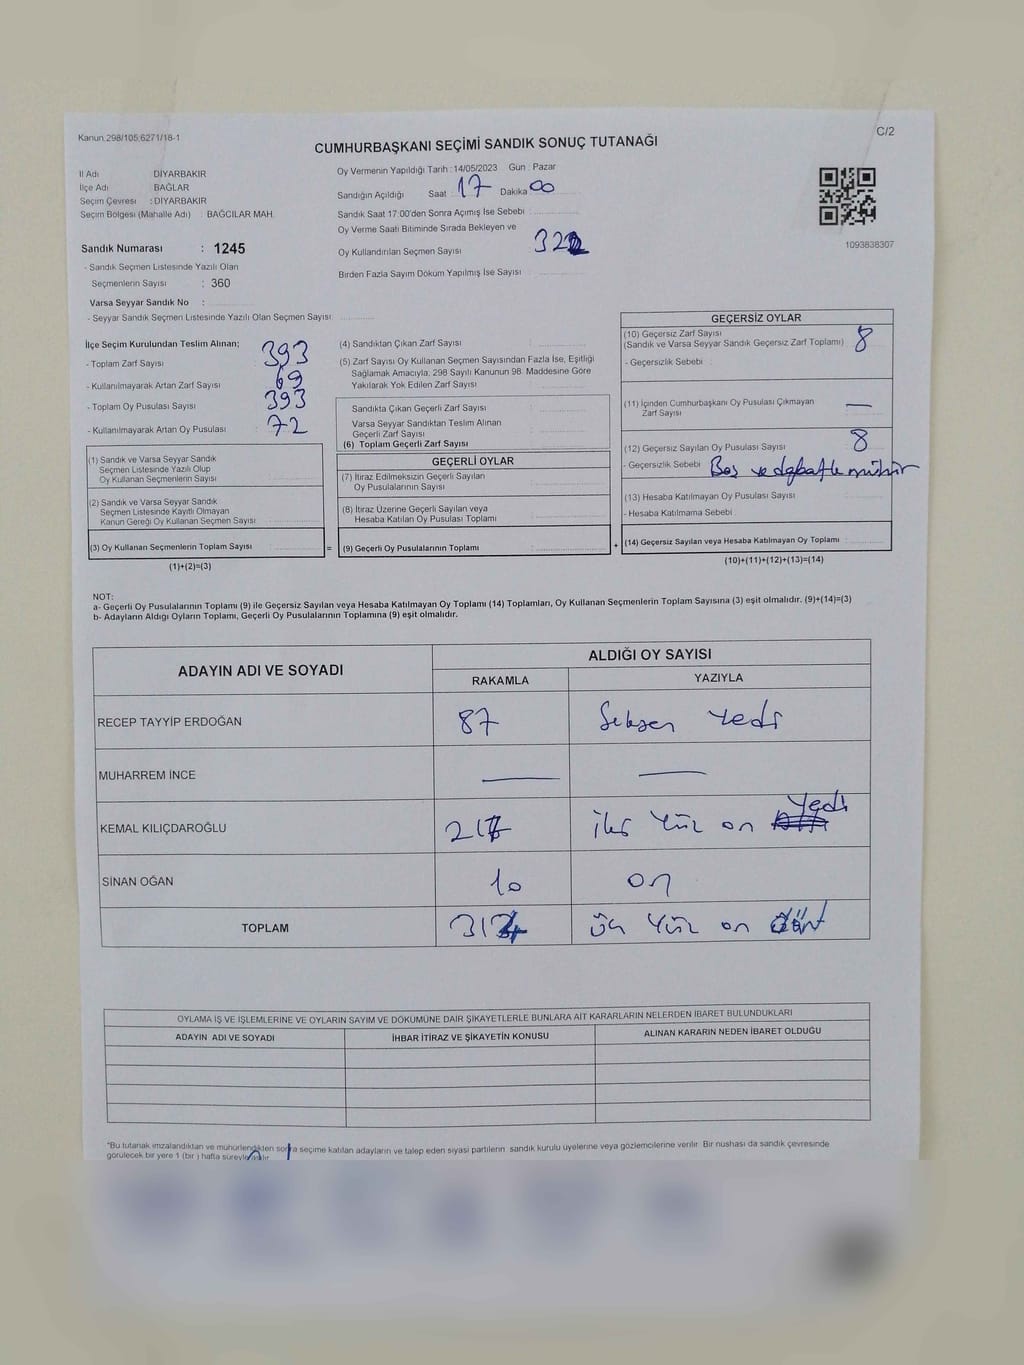 Kanun 298/105,6271/18-1
C/2
CUMHURBAŞKANI SEÇİMİ SANDIK SONUÇ TUTANAĞI
İl Adı DİYARBAKIR
İlçe Adı BAĞLAR
Seçim Çevresi : DİYARBAKIR
Seçim Bölgesi (Mahalle Adı) : BAĞCILAR MAH.
Sandık Numarası : 1245
- Sandık Seçmen Listesinde Yazılı Olan
Seçmenlerin Sayısı : 360
Varsa Seyyar Sandık No :
- Seyyar Sandık Seçmen Listesinde Yazılı Olan Seçmen Sayısı:
Oy Vermenin Yapıldığı Tarih : 14/05/2023 Gün : Pazar
Sandığın Açıldığı Saat 17 Dakika 00
Sandık Saat 17:00'den Sonra Açımış İse Sebebi :
Oy Verme Saati Bitiminde Sırada Bekleyen ve
Oy Kullandırılan Seçmen Sayısı : 322
Birden Fazla Sayım Döküm Yapılmış İse Sayısı :
1093838307
İlçe Seçim Kurulundan Teslim Alınan;
- Toplam Zarf Sayısı : 393
- Kullanılmayarak Artan Zarf Sayısı : 69
- Toplam Oy Pusulası Sayısı : 393
- Kullanılmayarak Artan Oy Pusulası : 72
(1) Sandık ve Varsa Seyyar Sandık
Seçmen Listesinde Yazılı Olup
Oy Kullanan Seçmenlerin Sayısı :
(2) Sandık ve Varsa Seyyar Sandık
Seçmen Listesinde Kayıtlı Olmayan
Kanun Gereği Oy Kullanan Seçmen Sayısı :
(3) Oy Kullanan Seçmenlerin Toplam Sayısı : =
(1)+(2)=(3)
(4) Sandıktan Çıkan Zarf Sayısı :
(5) Zarf Sayısı Oy Kullanan Seçmen Sayısından Fazla İse, Eşitliği
Sağlamak Amacıyla; 298 Sayılı Kanunun 98. Maddesine Göre
Yakılarak Yok Edilen Zarf Sayısı :
Sandıkta Çıkan Geçerli Zarf Sayısı :
Varsa Seyyar Sandıktan Teslim Alınan
Geçerli Zarf Sayısı :
(6) Toplam Geçerli Zarf Sayısı :
GEÇERLİ OYLAR
(7) İtiraz Edilmeksizin Geçerli Sayılan
Oy Pusulalarının Sayısı :
(8) İtiraz Üzerine Geçerli Sayılan veya
Hesaba Katılan Oy Pusulası Toplamı :
(9) Geçerli Oy Pusulalarının Toplamı : +
GEÇERSİZ OYLAR
(10) Geçersiz Zarf Sayısı
(Sandık ve Varsa Seyyar Sandık Geçersiz Zarf Toplamı) : 8
- Geçersizlik Sebebi :
(11) İçinden Cumhurbaşkanı Oy Pusulası Çıkmayan
Zarf Sayısı : —
(12) Geçersiz Sayılan Oy Pusulası Sayısı : 8
- Geçersizlik Sebebi : Boş ve
(13) Hesaba Katılmayan Oy Pusulası Sayısı :
- Hesaba Katılmama Sebebi :
(14) Geçersiz Sayılan veya Hesaba Katılmayan Oy Toplamı :
(10)+(11)+(12)+(13)=(14)
NOT:
a- Geçerli Oy Pusulalarının Toplamı (9) ile Geçersiz Sayılan veya Hesaba Katılmayan Oy Toplamı (14) Toplamları, Oy Kullanan Seçmenlerin Toplam Sayısına (3) eşit olmalıdır. (9)+(14)=(3)
b- Adayların Aldığı Oyların Toplamı, Geçerli Oy Pusulalarının Toplamına (9) eşit olmalıdır.
ADAYIN ADI VE SOYADI
ALDIĞI OY SAYISI
RAKAMLA YAZIYLA
RECEP TAYYİP ERDOĞAN 87 Seksen Yedi
MUHARREM İNCE — —
KEMAL KILIÇDAROĞLU 217 iki Yüz on Yedi
SİNAN OĞAN 10 on
TOPLAM 314 üç Yüz on dört
OYLAMA İŞ VE İŞLEMLERİNE VE OYLARIN SAYIM VE DÖKÜMÜNE DAİR ŞİKAYETLERLE BUNLARA AİT KARARLARIN NELERDEN İBARET BULUNDUKLARI
ADAYIN ADI VE SOYADI İHBAR İTİRAZ VE ŞİKAYETİN KONUSU ALINAN KARARIN NEDEN İBARET OLDUĞU
*Bu tutanak imzalandıktan ve mühürlendikten sonra seçime katılan adayların ve talep eden siyasi partilerin sandık kurulu üyelerine veya gözlemcilerine verilir. Bir nushası da sandık çevresinde
görülecek bir yere 1 (bir) hafta süreyle asılır.